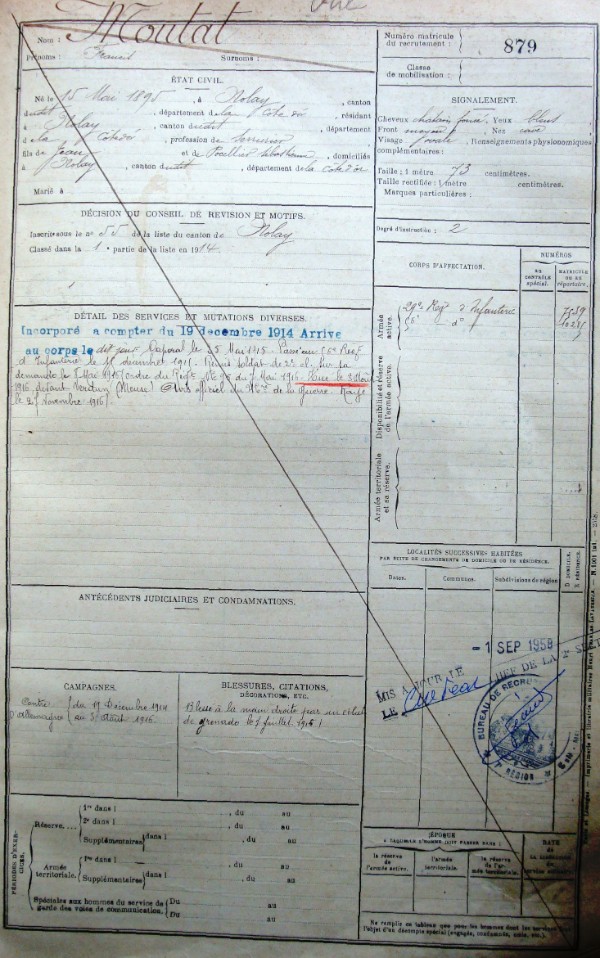 Vue
Nom : Moutat
Prénoms : Francis Surnoms :
Numéro matricule
du recrutement : 879
Classe
de mobilisation :
ÉTAT CIVIL.
Né le 15 Mai 1895, à Nolay, canton
dudit, département de la Côte d'or, résidant
à Nolay, canton dudit, département
d e la Côte d'or, profession de Serrurier
fils de Jean et de domiciliés
à Nolay, canton dudit, département de la Côte d'or
Marié à
SIGNALEMENT.
Cheveux chatain foncé Yeux bleus
Front moyen Nez cave
Visage ovale, Renseignements physionomiques
complémentaires :
Taille : 1 mètre 73 centimètres.
Taille rectifiée : 1 mètre centimètres.
Marques particulières :
DÉCISION DU CONSEIL DE REVISION ET MOTIFS.
Inscrit sous le n° 55 de la liste du canton de Nolay
Classé dans la 1e partie de la liste en 1914
Degré d'instruction : 2
CORPS D'AFFECTATION.
NUMÉROS
AU CONTRÔLE spécial.
MATRICULE OU AU répertoire.
Armée active.
29e Reg d'Infanterie
56e do
Disponibilité et réserve de l'armée active.
Armée territoriale et sa réserve.
DÉTAIL DES SERVICES ET MUTATIONS DIVERSES.
Incorporé a compter du 19 decembre 1914 Arrive
au corps le dit jour. Caporal le 25 Mai 1915. Passé au 56e Reg
d'Infanterie le décembre 1915. Remis soldat de 2e cl. sur sa
demande le Mai 1916 (ordre du Reg du Mai 1916. Tué le 3 Août
1916 devant Verdun (Meuse) Avis officiel du Mre de la Guerre. Rayé
le Novembre 1916.
LOCALITÉS SUCCESSIVES HABITÉES
PAR SUITE DE CHANGEMENTS DE DOMICILE OU DE RÉSIDENCE.
Dates. Communes. Subdivisions de région.
D. DOMICILE. R. RÉSIDENCE.
ANTÉCÉDENTS JUDICIAIRES ET CONDAMNATIONS.
- 1 SEP 1959
MIS A JOUR LE
LE CHEF DE LA 2e SECT
BUREAU DE RECRU
RÉGION M
CAMPAGNES.
Contre du 19 Décembre 1914
l'Allemagne au 3 Août 1916
BLESSURES, CITATIONS,
DÉCORATIONS, ETC.
Blessé à la main droite par un éclat
de grenade le 7 juillet 1916
PÉRIODES D'EXERCICES.
Réserve.... 1re dans l , du au
2e dans l , du au
Supplémentaires dans l , du au
Armée territoriale. 1re dans l , du au
Supplémentaires dans l , du au
Spéciales aux hommes du service de
garde des voies de communication.
Du au
Du au
ÉPOQUE
A LAQUELLE L'HOMME DOIT PASSER DANS :
la réserve de l'armée active.
l'armée territoriale.
la réserve de l'armée territoriale.
DATE
DE LA
du service militaire
Ne remplir ce tableau que pour les hommes dont les services font
l'objet d'un décompte spécial (engagés, condamnés, omis, etc.).